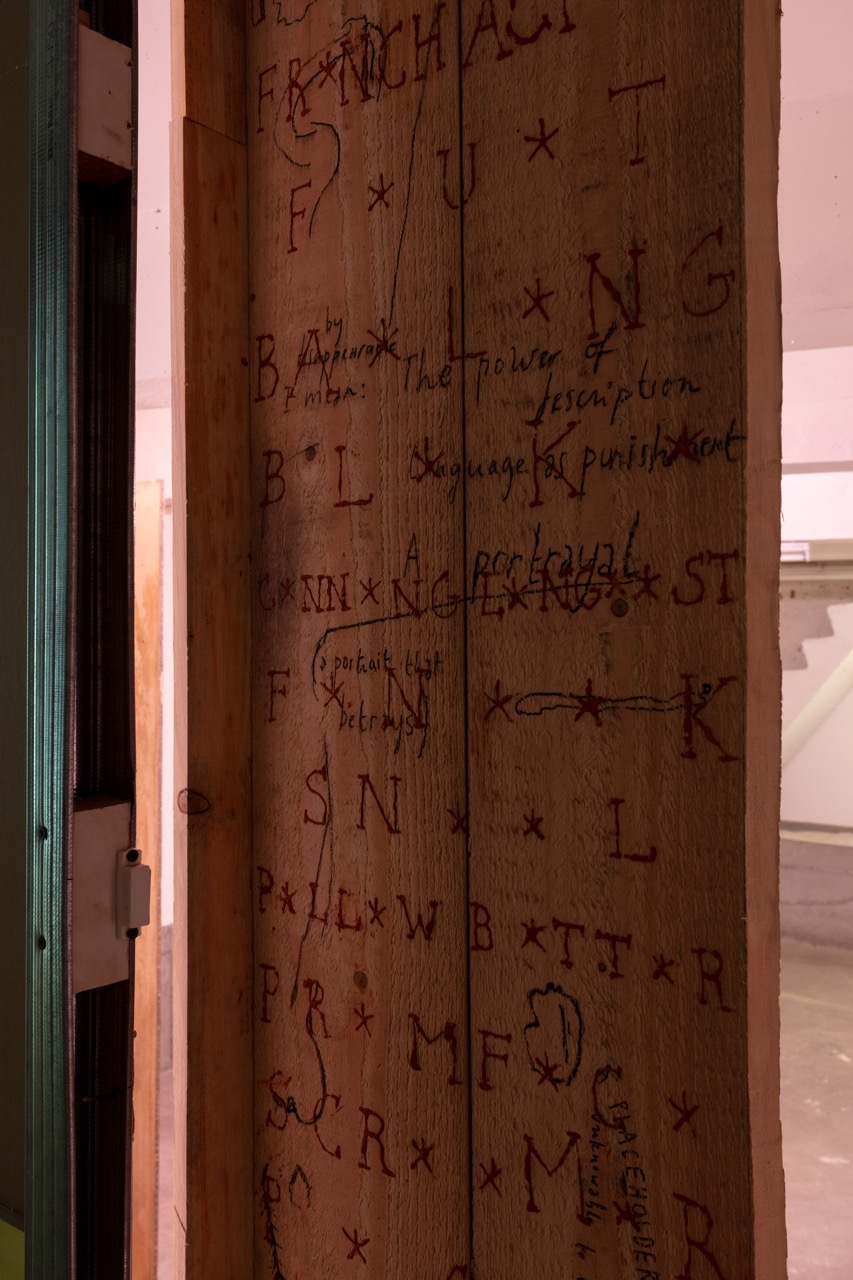 FR*NCH ACT
F * U * T
BA * L * NG
by
disappearance
I mean: The power of
description
BL * K *
Language as punishment
A portrayal
C*NN*NG L*NG**ST
(a portrait that
betrays)
F * N * * K
SN * * L
P*LL*W B*TT*R
PR * MF *
SCR * * M * R
PLACEHOLDER